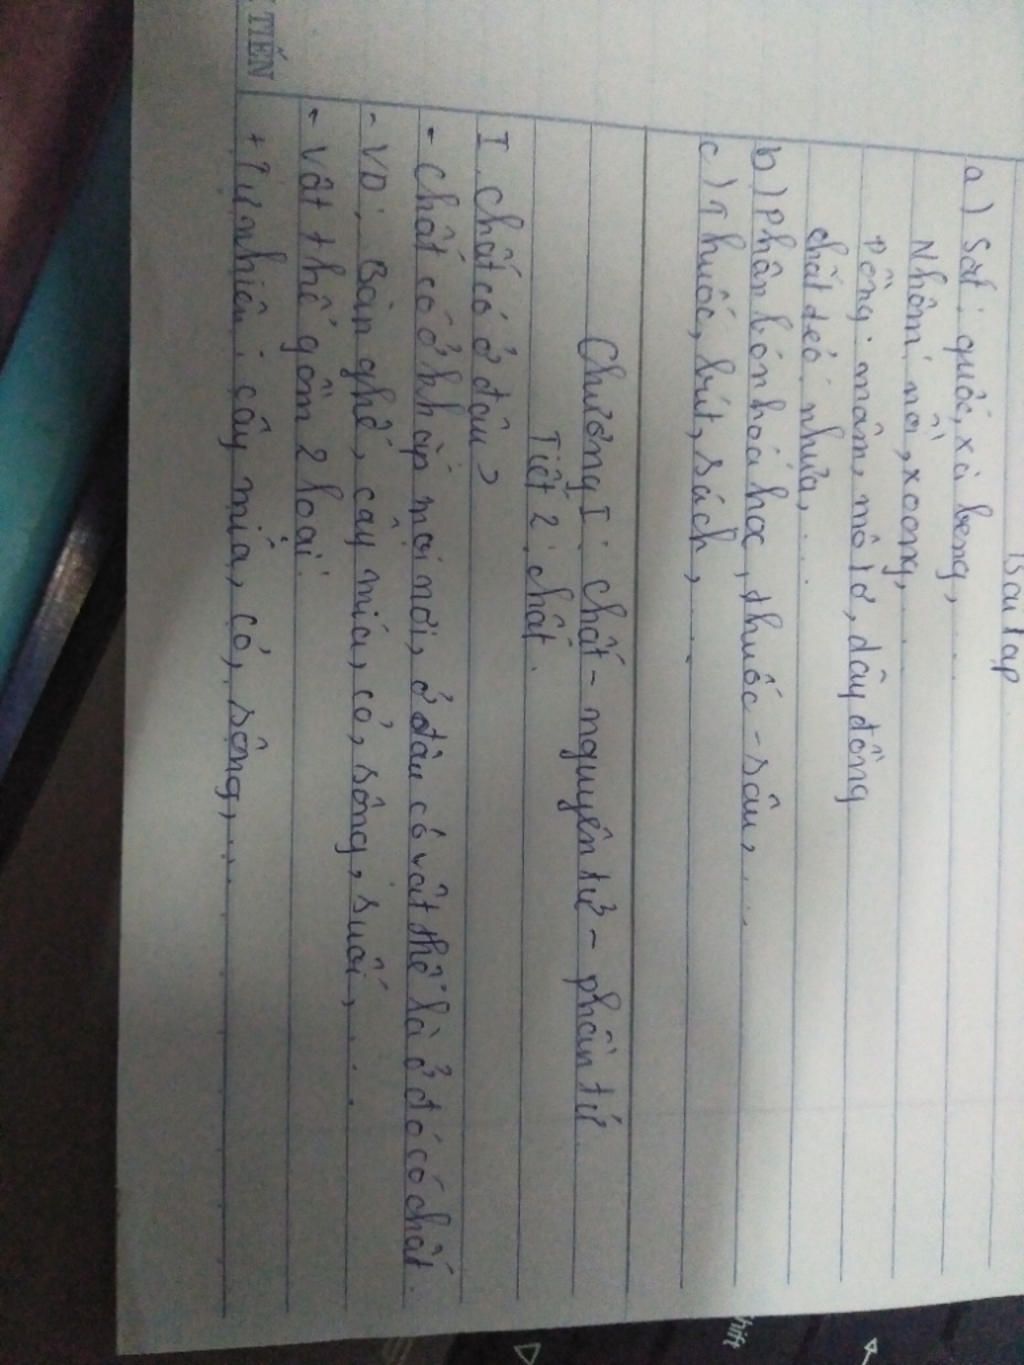 Bài tập
a) Sắt: quốc, xà beng, ...
Nhôm: nồi, xoong, ...
Đồng: mâm, mô tơ, dây đồng
chất dẻo: nhựa, ...
b) Phân bón hoá học, thuốc - sâu, ...
c) Thuốc, bút, sách, ...
Chương I: chất - nguyên tử - phân tử
Tiết 2: chất.
I. Chất có ở đâu?
- Chất có ở khắp mọi nơi, ở đâu có vật thể là ở đó có chất.
- VD: Bàn ghế, cây mía, cỏ, sông, suối, ...
- Vật thể gồm 2 loại:
+ Tự nhiên: cây mía, cỏ, sông, ...
TIẾN
shift